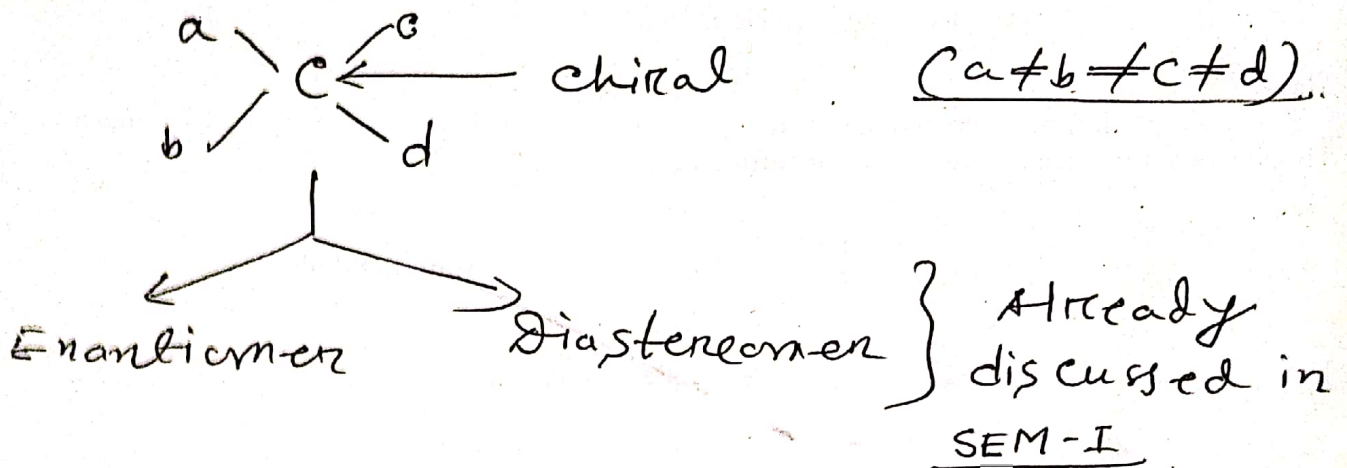 a c
C ← chiral (a≠b≠c≠d)
b d
Enantiomer Diastereomer } Already
discussed in
SEM-I